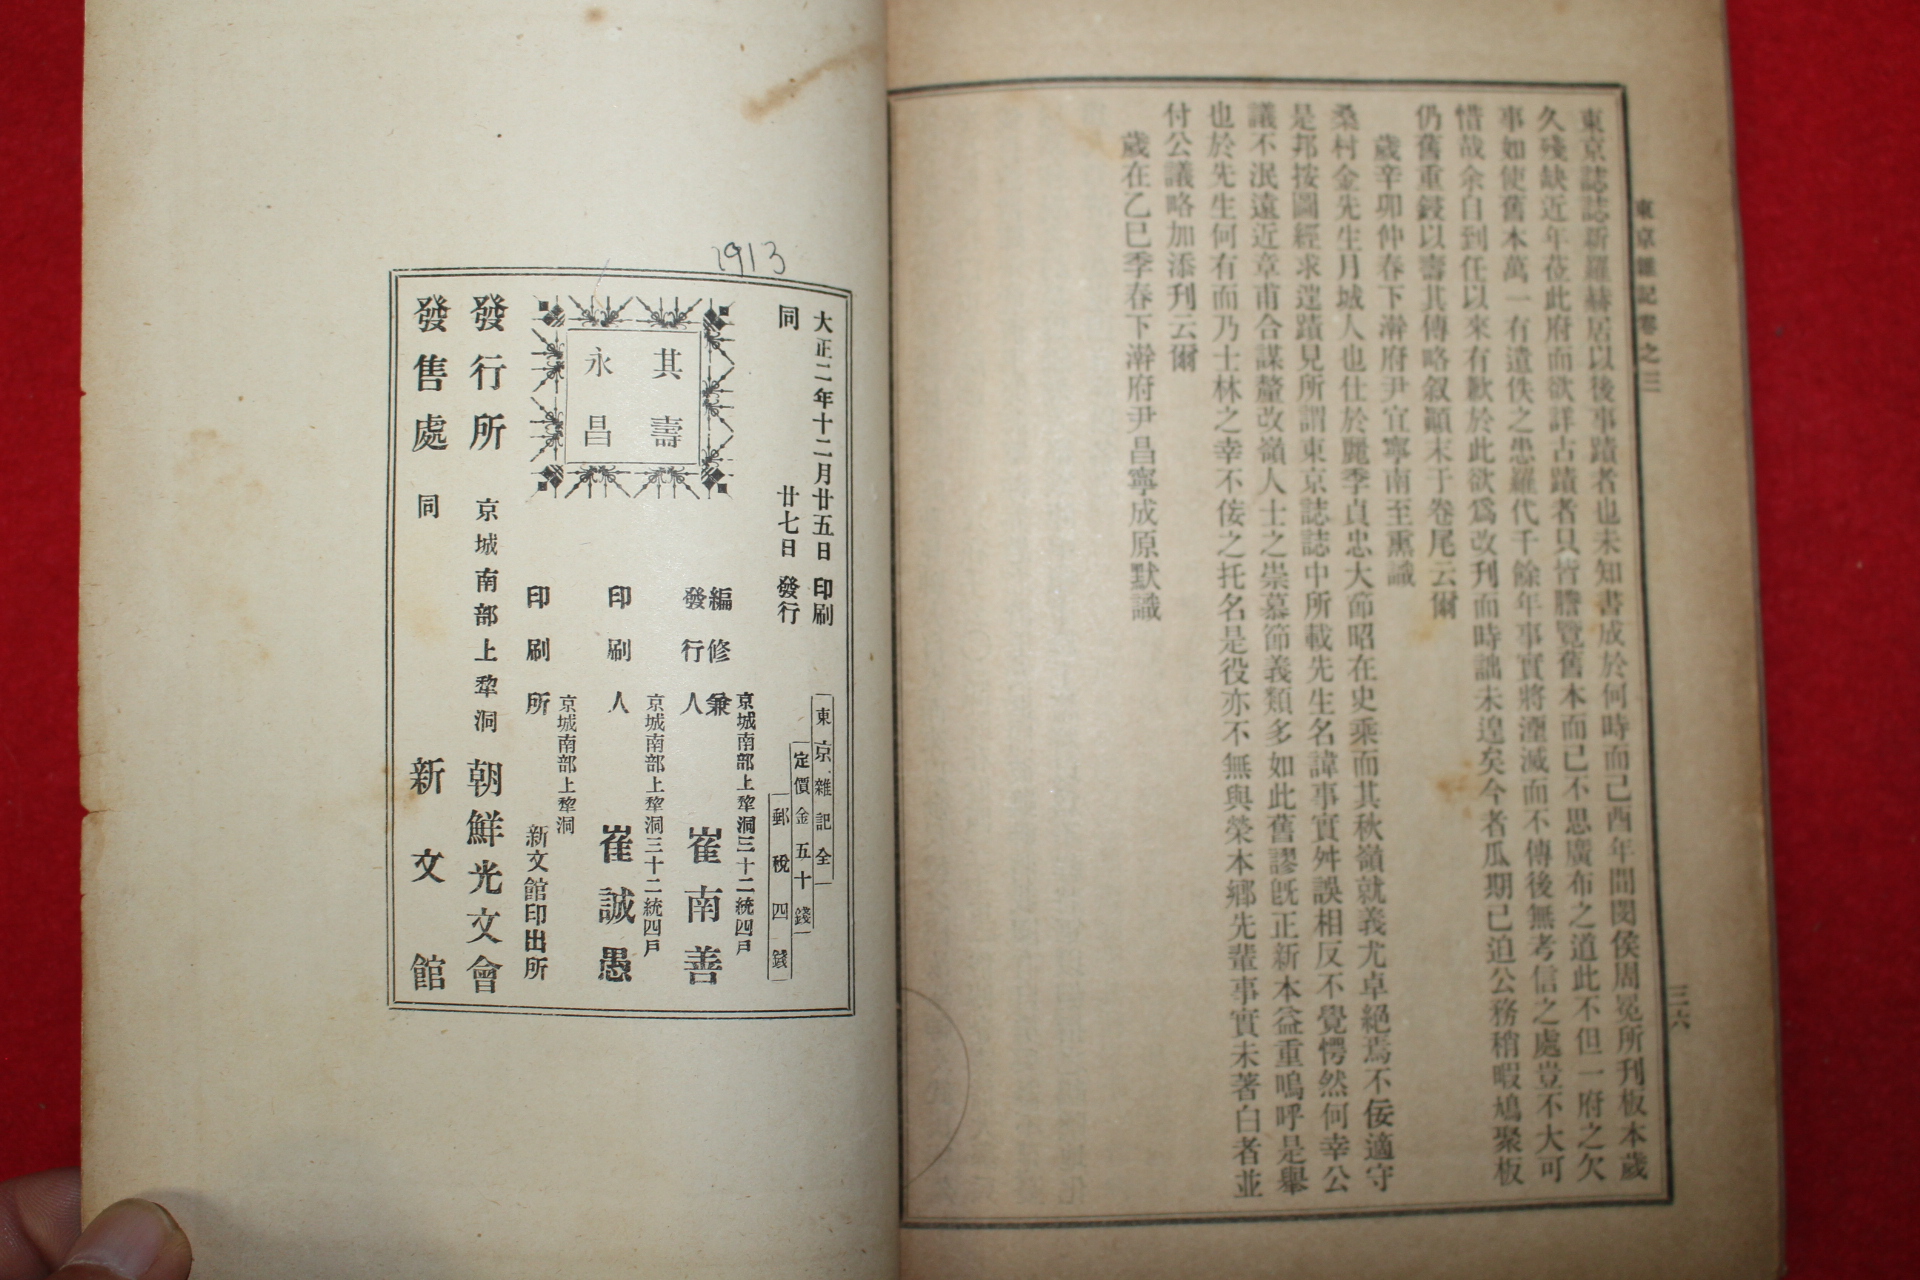 東京雜記卷之三
三六
東京誌誌新羅赫居以後事蹟者也未知書成於何時而己酉年間閔侯周冕所刊板本歲
久殘缺近年莅此府而欲詳古蹟者只皆謄覽舊本而已不思廣布之道此不但一府之欠
事如使舊本萬一有遺佚之患羅代千餘年事實將湮滅而不傳後無考信之處豈不大可
惜哉余自到任以來有歉於此欲爲改刊而時詘未遑矣今者瓜期已迫公務稍暇鳩聚板
仍舊重鋟以壽其傳略叙顚末于卷尾云爾
歲辛卯仲春下澣府尹宜寧南至熏識
桑村金先生月城人也仕於麗季貞忠大節昭在史乘而其秋嶺就義尤卓絕焉不佞適守
是邦按圖經求遑蹟見所謂東京誌誌中所載先生名諱事實舛誤相反不覺愕然何幸公
議不泯遠近章甫合謀釐改嶺人士之崇慕節義類多如此舊謬旣正新本益重嗚呼是擧
也於先生何有而乃士林之幸不佞之托名是役亦不無與榮本鄕先輩事實未著白者並
付公議略加添刊云爾
歲在乙巳季春下澣府尹昌寧成原默識
1913
大正二年十二月廿五日印刷
同 廿七日發行
東京雜記全
定價金五十錢
郵稅四錢
其壽
永昌
京城南部上犂洞三十二統四戶
編修兼
發行人 崔南善
京城南部上犂洞三十二統四戶
印刷人 崔誠愚
京城南部上犂洞
印刷所 新文館印出所
發行所 京城南部上犂洞 朝鮮光文會
發售處 同 新文館